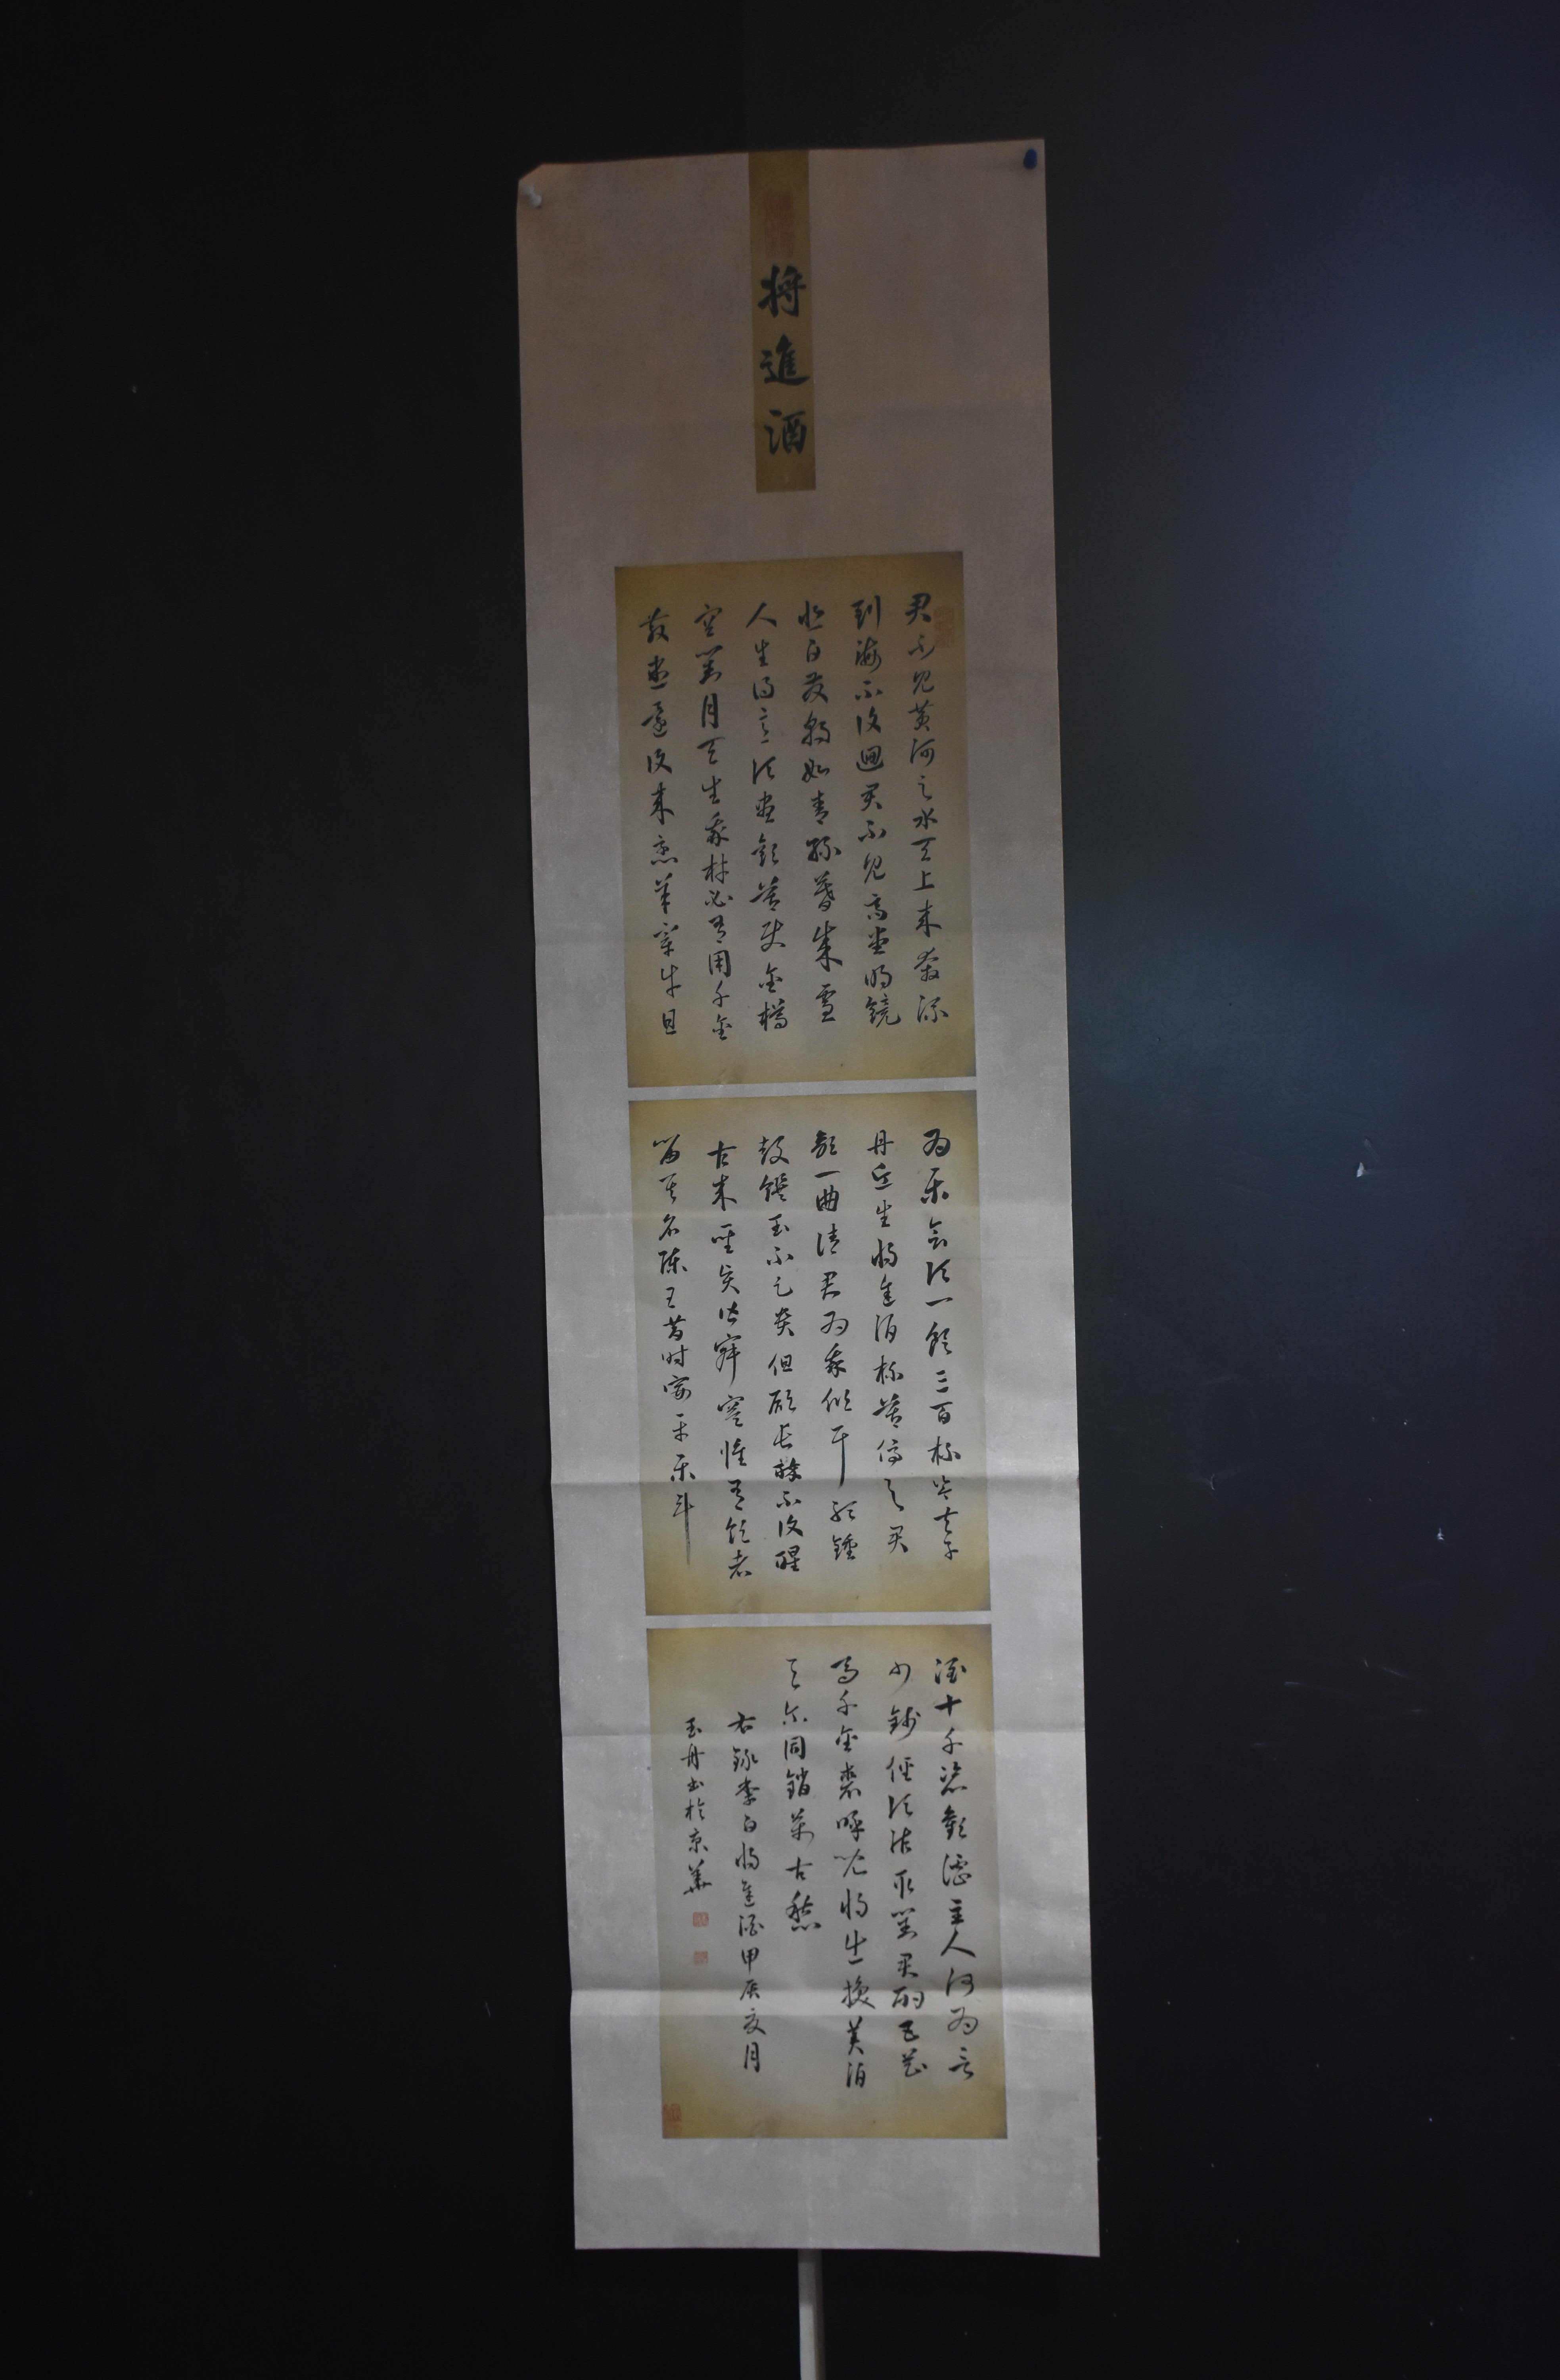 将進酒
君不見黃河之水天上來奔流
到海不復迴君不見高堂明鏡
悲白髮朝如青絲暮成雪
人生得意須盡歡莫使金樽
空對月天生我材必有用千金
散盡還復來烹羊宰牛且
為樂會須一飲三百杯岑夫子
丹丘生將進酒杯莫停与君
歌一曲請君為我傾耳聽鍾
鼓饌玉不足貴但願長醉不復醒
古來聖賢皆寂寞惟有飲者
留其名陳王昔時宴平樂斗
酒十千恣歡謔主人何為言
少錢徑須沽取對君酌五花
馬千金裘呼兒將出換美酒
与尔同銷萬古愁
右錄李白將進酒甲辰夏月
玉丹書於京華